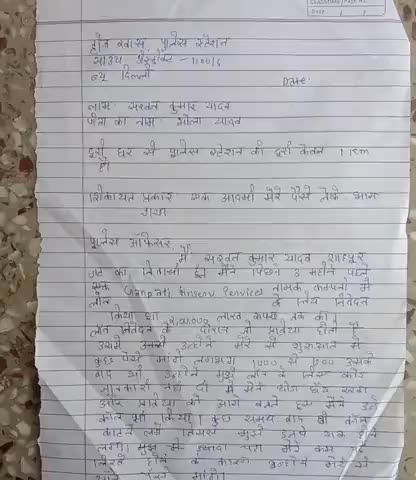 हौज खास पुलिस स्टेशन
साउथ डिस्ट्रिक्ट - 110016
न्यू दिल्ली
Date:
नाम: सरवन कुमार यादव
पिता का नाम: भोला यादव
दूरी घर से पुलिस स्टेशन की दूरी केवल 1 km
है।
शिकायत प्रकार: एक आदमी मेरे पैसे लेके भाग
गया
पुलिस ऑफिसर
में सरवन कुमार यादव शाहपुर
जट का निवासी हूँ। मैंने पिछले 3 महीने पहले
एक Ganpati finserv Services नामक कम्पनी में
लोन के लिय निवेदन
किया था 2,00,000 लाख रूपय तक की।
लोन निवेदन के दौरान जो प्रक्रिया होती है
उसमें उन्होंने मेरे से शुरुआत में
कुछ पैसे मांगे लगभग 1000 से
बाद भी उन्होंने मुझे लोन के लिए कोई
जानकारी नहीं दी में मैंने
प्रक्रिया को आगे बढ़ाते हुय मैंने उन्हें
कॉल भी किया। कुछ समय बाद वो कॉल
काटने लगे जिससे मुझे उनपे शक होने
लगा। मुझ से
होने के कारण उन्होंने मेरे से